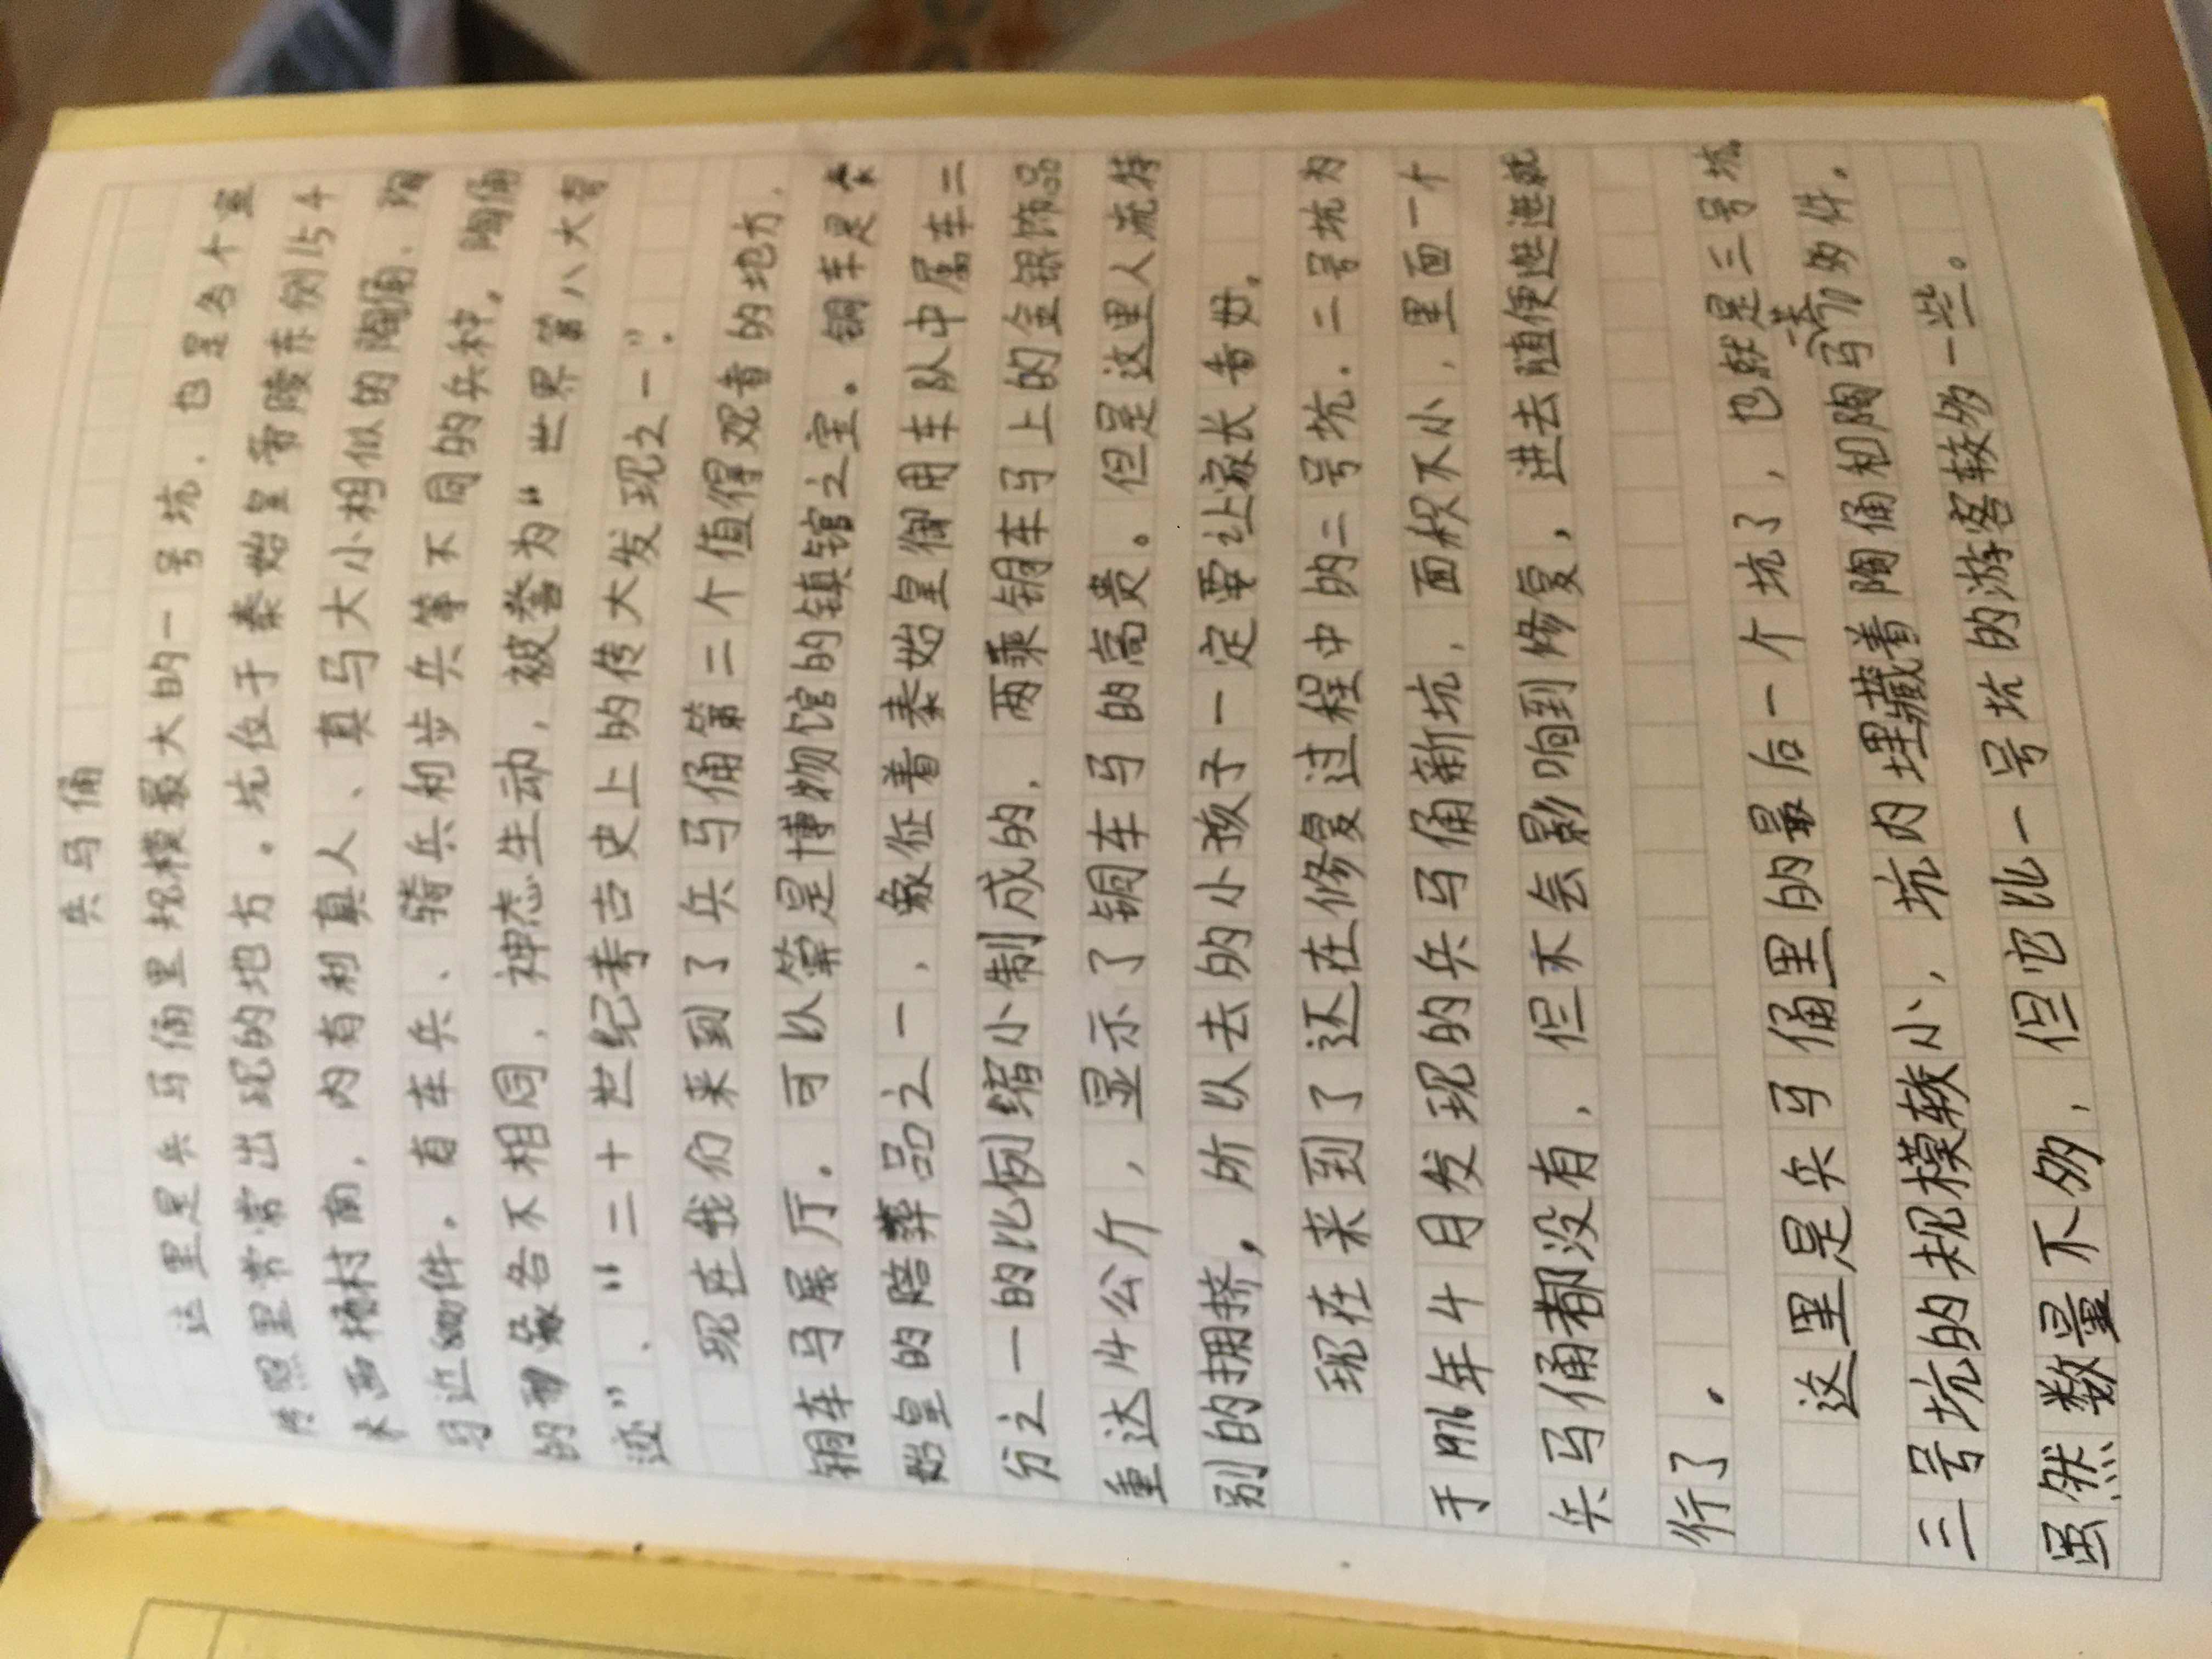 兵马俑
这里是兵马俑里规模最大的一号坑，也是各个宣
传照里常常出现的地方。坑位于秦始皇帝陵东侧1.5千
米西杨村南，内有和真人、真马大小相似的陶俑、陶
马近6000件。有车兵、骑兵和步兵等不同的兵种。陶俑
的形象各不相同，神态生动，被誉为“世界第八大奇
迹”、“二十世纪考古史上的传大发现之一”.
现在我们来到了兵马俑第二个值得观看的地方，
铜车马展厅。可以算是博物馆的镇馆之宝。铜车是秦
始皇的陪葬品之一，象征着秦始皇御用车队中属车二
分之一的比例缩小制成的，两乘铜车马上的金银饰品
重达14公斤，显示了铜车马的高贵。但是这里人流特
别的拥挤，所以去的小孩子一定要让家长看好。
现在来到了还在修复过程中的二号坑．二号坑为
于1976年4月发现的兵马俑新坑，面积不小，里面一个
兵马俑都没有，但不会影响到修复，进去随便逛逛就
行了．
这里是兵马俑里的最后一个坑了，也就是三号坑
三号坑的规模较小，坑内埋藏着陶俑和陶马共70多件．
虽然数量不多，但它比一号坑的游客较多一些。